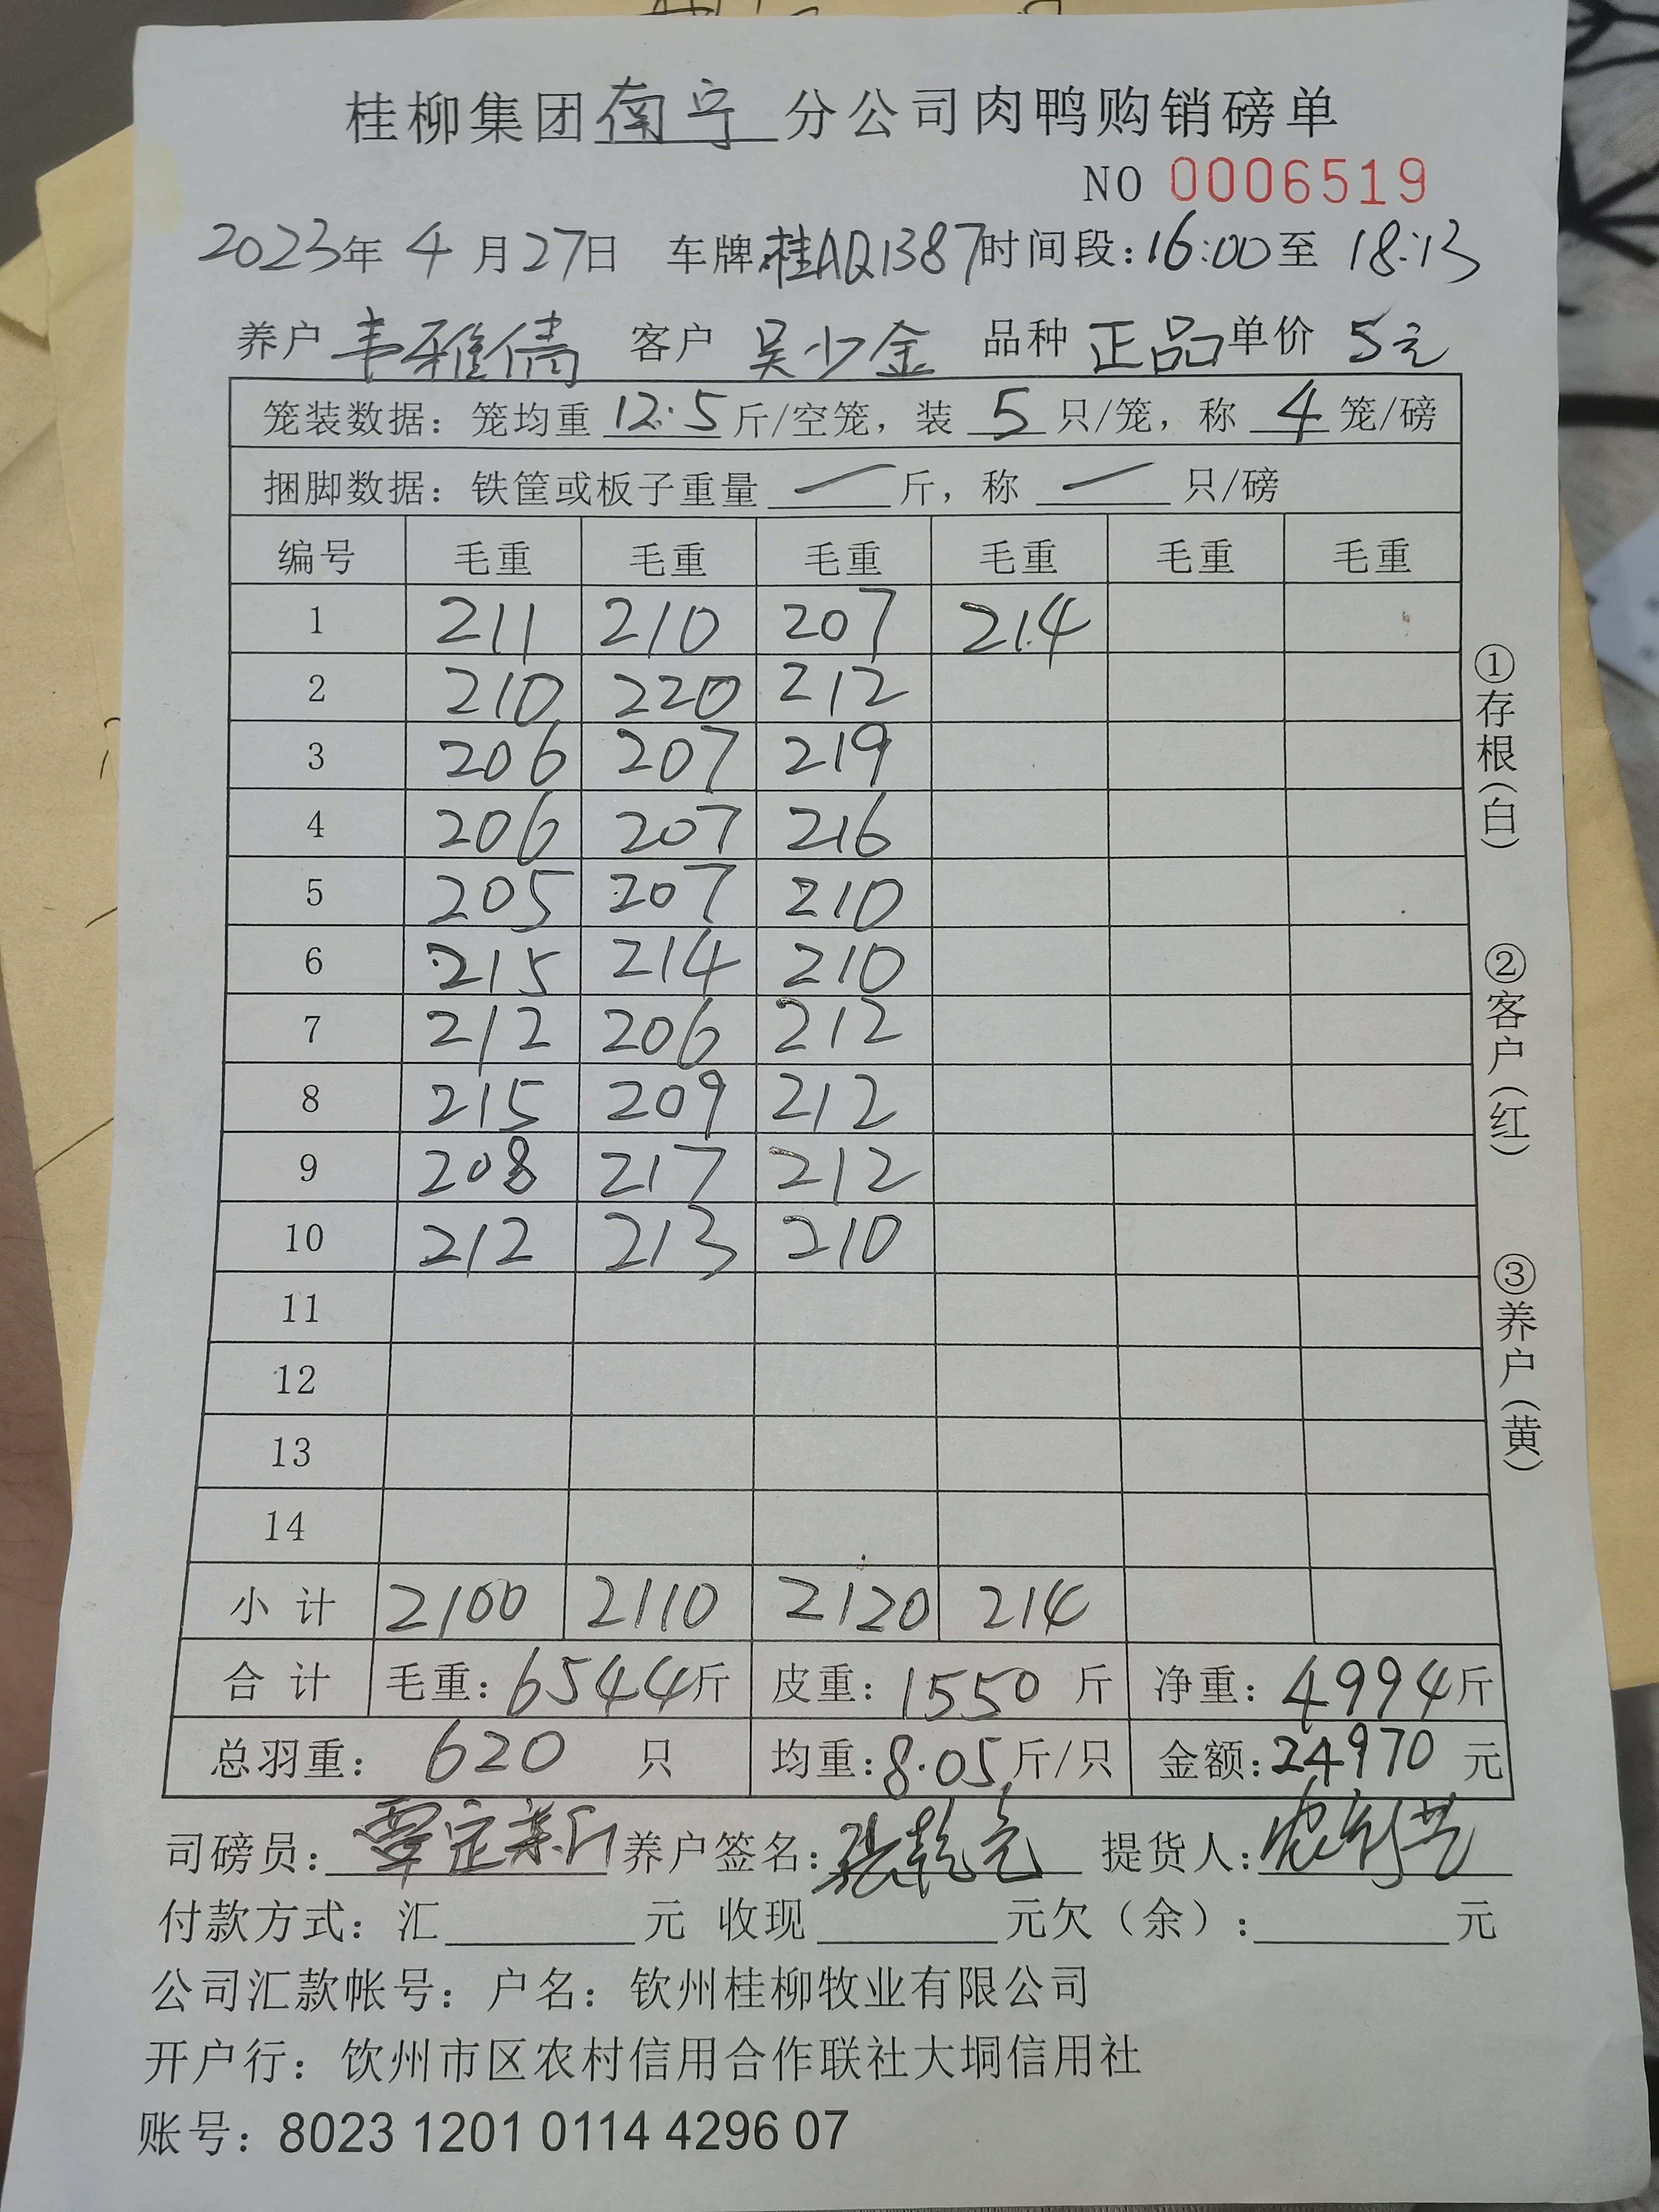 桂柳集团南宁分公司肉鸭购销磅单
NO 0006519
2023年 4 月27日 车牌桂AQ1387时间段:16:00至 18:13
养户 韦雅倩 客户 吴少金 品种 正品 单价 5元
笼装数据：笼均重 12.5 斤/空笼，装 5 只/笼，称 4 笼/磅
捆脚数据：铁筐或板子重量 — 斤，称 — 只/磅
编号 毛重 毛重 毛重 毛重 毛重 毛重
1 211 210 207 214
2 210 220 212
3 206 207 219
4 206 207 216
5 205 207 210
6 215 214 210
7 212 206 212
8 215 209 212
9 208 217 212
10 212 213 210
11
12
13
14
小计 2100 2110 2120 214
合计 毛重：6544斤 皮重：1550 斤 净重：4994斤
总羽重： 620 只 均重:8.05斤/只 金额:24970 元
司磅员: 养户签名: 提货人:
付款方式：汇 元 收现 元欠（余）: 元
公司汇款帐号：户名：钦州桂柳牧业有限公司
开户行：饮州市区农村信用合作联社大垌信用社
账号：8023 1201 0114 4296 07
①存根(白) ②客户(红) ③养户(黄)